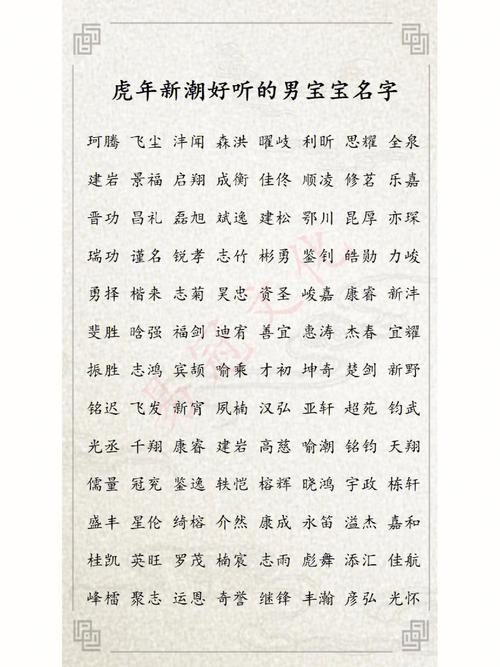 虎年新潮好听的男宝宝名字
珂腾 飞尘 沣闻 森洪 曜岐 利昕 思耀 全泉
建岩 景福 启翔 成衡 佳佟 顺凌 修茗 乐嘉
晋功 昌礼 磊旭 斌逸 建松 鄂川 昆厚 亦琛
瑞功 谨名 锐孝 志竹 彬勇 鉴钊 皓勋 力峻
勇择 楷来 志菊 昊忠 资圣 峻嘉 康睿 新沣
斐胜 晗强 福剑 迪宥 善宜 惠涛 杰春 宜耀
振胜 志鸿 宾颉 喻乘 才初 坤奇 楚剑 新野
铭迟 飞发 新宵 夙楠 汉弘 亚轩 超苑 钧武
光丞 千翔 康睿 建岩 高慈 喻潮 铭钧 天翔
儒量 冠兖 鉴逸 轶恺 榕辉 晓鸿 宇政 栋轩
盛丰 星伦 绮榕 介然 康成 永笛 溢杰 嘉和
桂凯 英旺 罗茂 楠宸 志雨 彪舞 添汇 佳航
峰檑 聚志 运恩 奇誉 继锋 丰瀚 彦弘 光怀